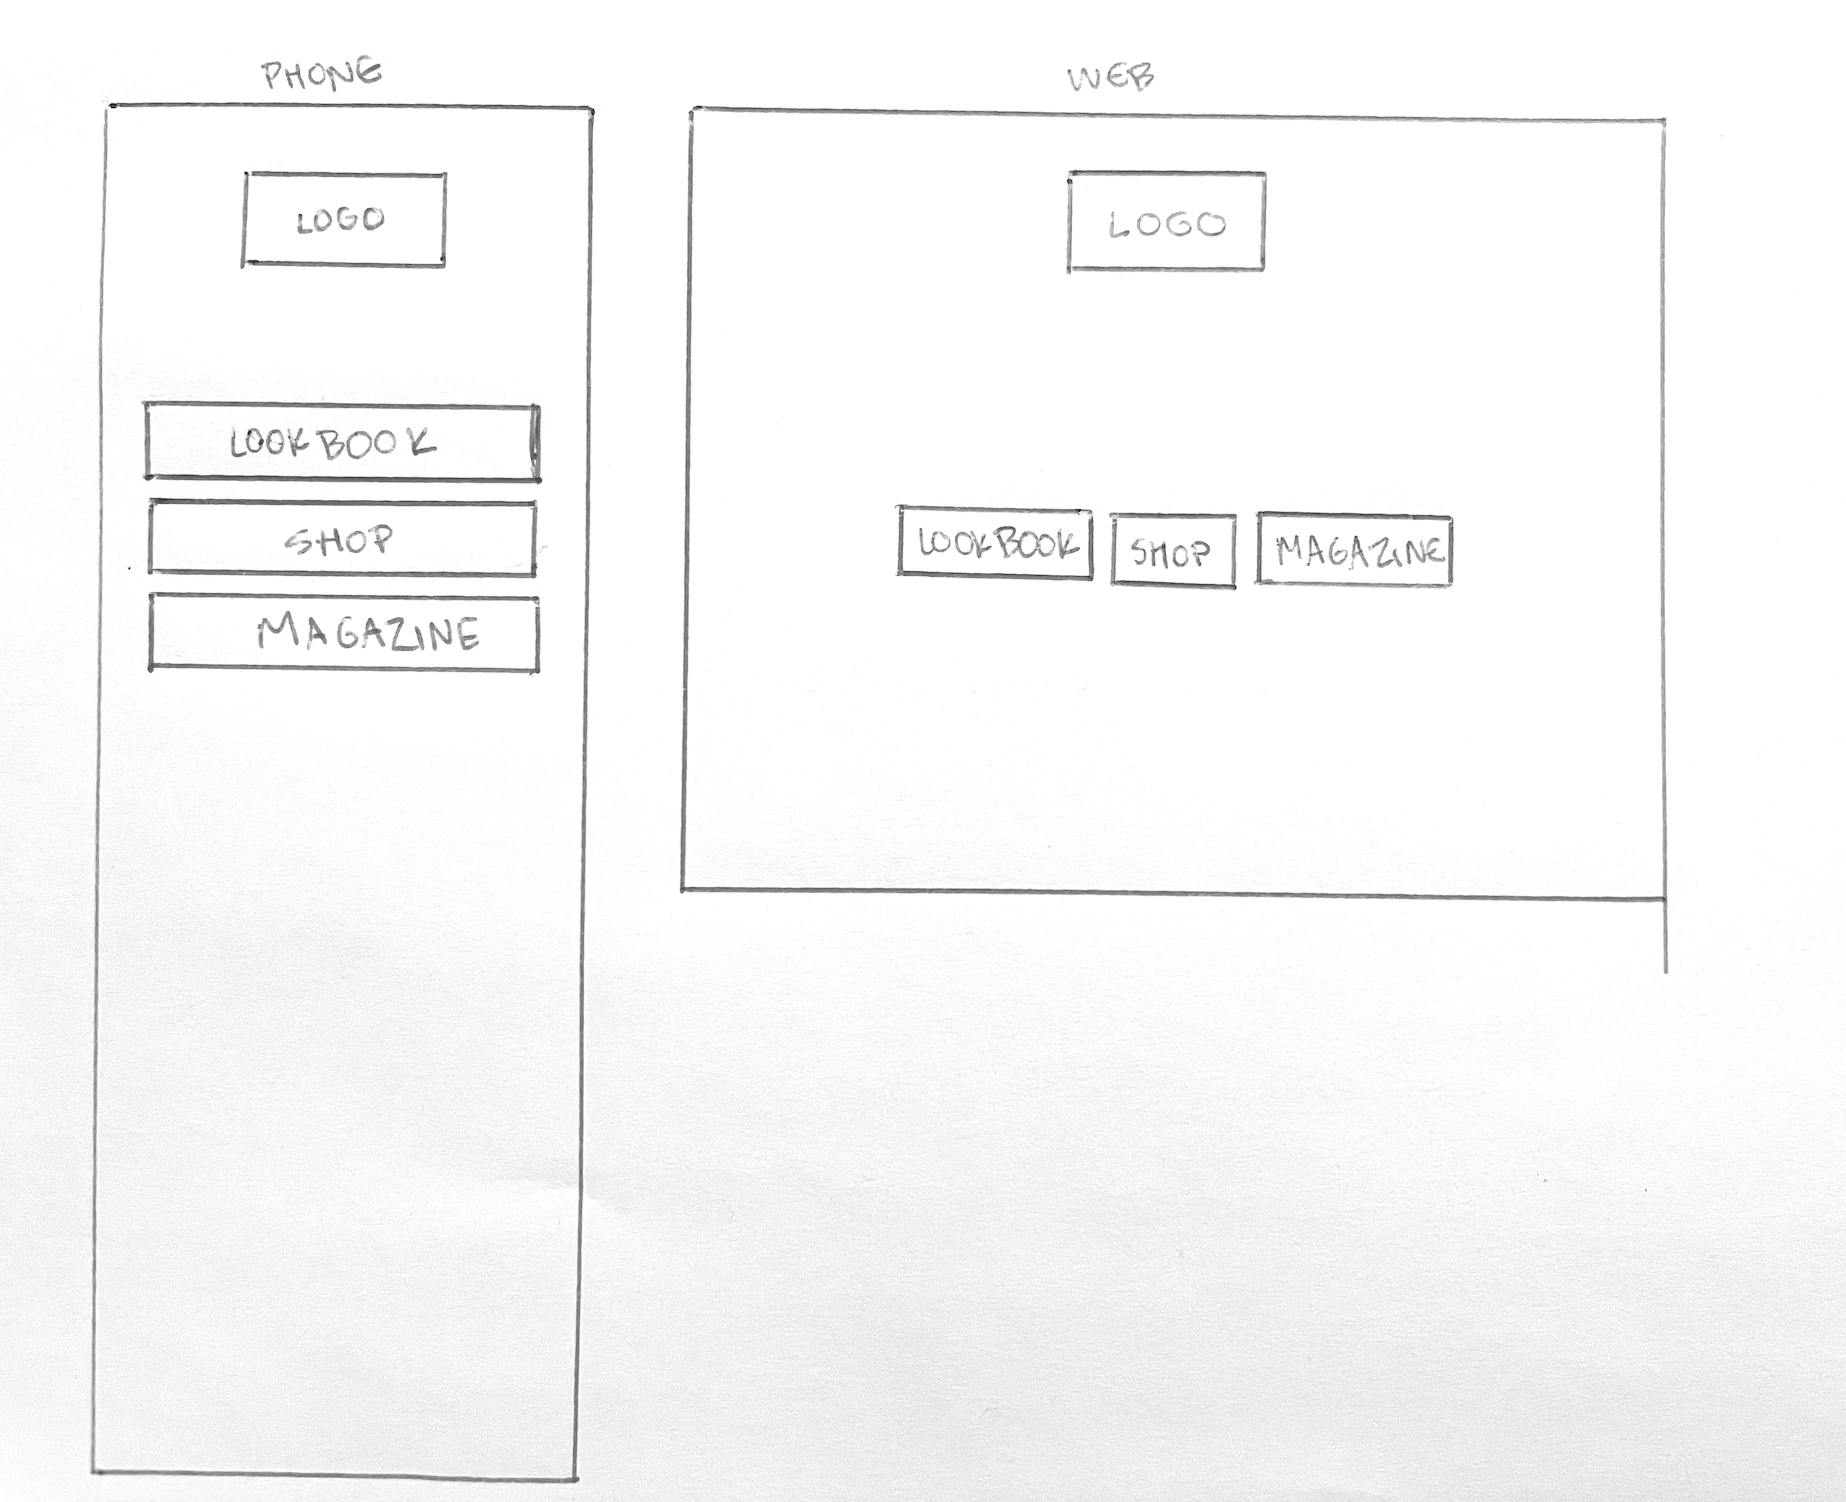 PHONE
LOGO
LOOKBOOK
SHOP
MAGAZINE
WEB
LOGO
LOOKBOOK
SHOP
MAGAZINE